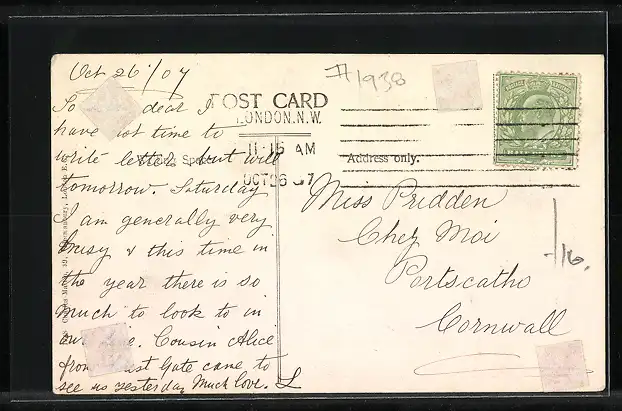 Oct 26/07
So dear I
have not time to
write letter but will
tomorrow. Saturday
I am generally very
busy & this time in
the year there is so
much to look to in
Cousin Alice
from Gate came to
see us yesterday. Much love. L
#1938
POST CARD
LONDON.N.W.
11.15 AM
OCT 26 07
Address only.
Miss Pridden
Chez Moi
Portscatho
Cornwall
/6.